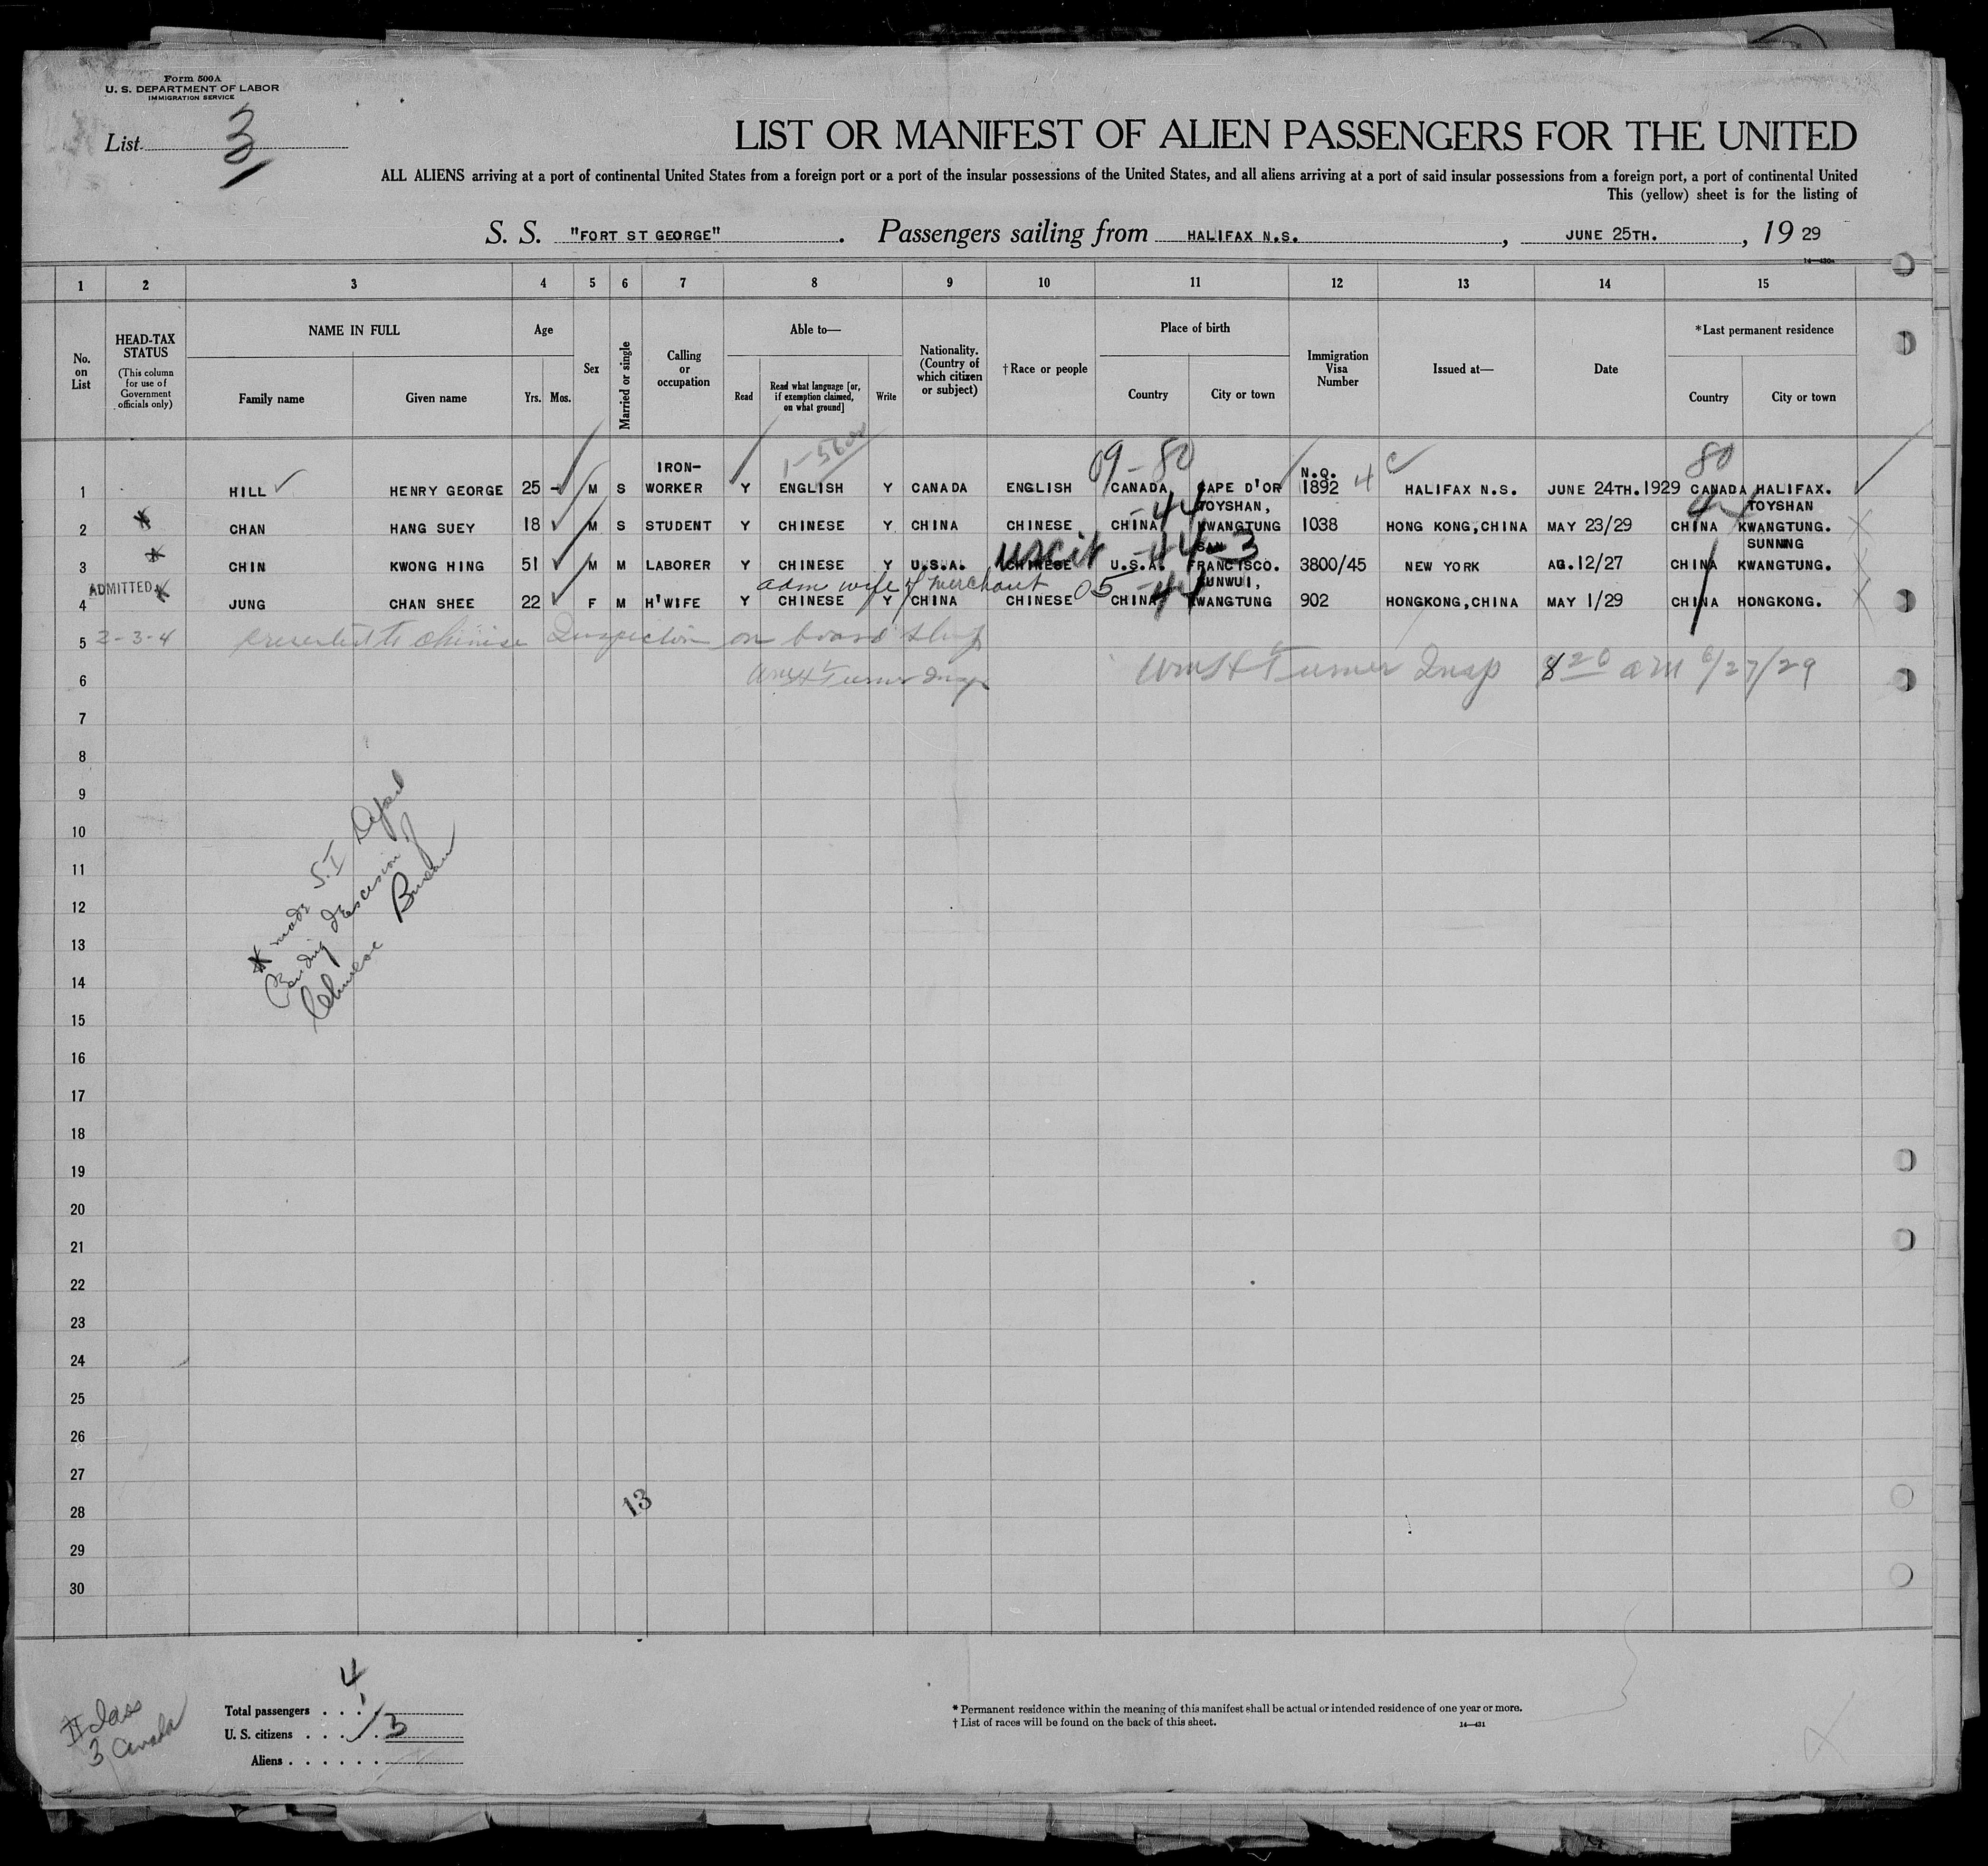 Form 500A
U. S. DEPARTMENT OF LABOR
IMMIGRATION SERVICE
List 3
LIST OR MANIFEST OF ALIEN PASSENGERS FOR THE UNITED
ALL ALIENS arriving at a port of continental United States from a foreign port or a port of the insular possessions of the United States, and all aliens arriving at a port of said insular possessions from a foreign port, a port of continental United
This (yellow) sheet is for the listing of
S. S. "FORT ST GEORGE" . Passengers sailing from HALIFAX N.S. , JUNE 25TH. , 19 29
1 2 3 4 5 6 7 8 9 10 11 12 13 14 15
No. on List
HEAD-TAX STATUS
(This column for use of Government officials only)
NAME IN FULL
Family name
Given name
Age
Yrs.
Mos.
Sex
Married or single
Calling or occupation
Able to—
Read
Read what language [or, if exemption claimed, on what ground]
Write
Nationality. (Country of which citizen or subject)
†Race or people
Place of birth
Country
City or town
Immigration Visa Number
Issued at—
Date
*Last permanent residence
Country
City or town
09-80
80
1 HILL HENRY GEORGE 25 - M S IRON-WORKER Y ENGLISH Y CANADA ENGLISH CANADA CAPE D'OR N.Q. 1892 4 HALIFAX N.S. JUNE 24TH.1929 CANADA HALIFAX.
2 CHAN HANG SUEY 18 M S STUDENT Y CHINESE Y CHINA CHINESE CHINA -44 TOYSHAN, KWANGTUNG 1038 HONG KONG,CHINA MAY 23/29 CHINA TOYSHAN KWANGTUNG.
3 CHIN KWONG HING 51 M M LABORER Y CHINESE Y U.S.A. CHINESE uscit U.S.A. -44-3 SAN FRANCISCO. 3800/45 NEW YORK AG.12/27 CHINA SUNNING KWANGTUNG.
adm wife of merchant 05 -44
ADMITTED
4 JUNG CHAN SHEE 22 F M H'WIFE Y CHINESE Y CHINA CHINESE CHINA SUNWUI, KWANGTUNG 902 HONGKONG,CHINA MAY 1/29 CHINA HONGKONG.
5 2-3-4 presented to Chinese Inspection on board ship
6 Wm H Turner Insp Wm H Turner Insp 8 20 am 6/27/29
7
8
9
10
11
12
13
14
15
16
17
18
19
20
21
22
23
24
25
26
27
28
29
30
made S.I
Pending
Chinese Bureau
13
4
Total passengers . . .
U. S. citizens . . . . 3
Aliens . . . . . .
II class
3 Canada
* Permanent residence within the meaning of this manifest shall be actual or intended residence of one year or more.
† List of races will be found on the back of this sheet.
14—431